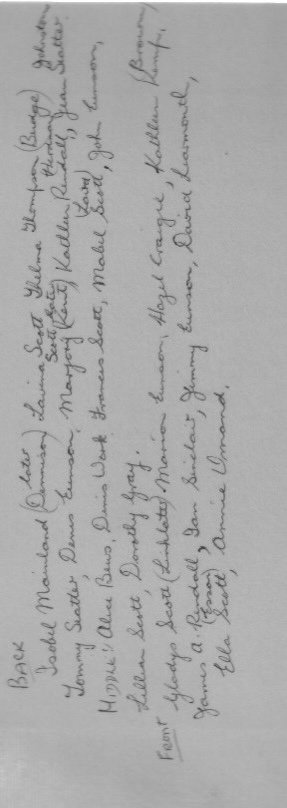 BACK
Isobel Mainland (later Dennison) Lavina Scott Thelma Thompson (Budge) Johnston
Tommy Seatter Denis Eunson, Marjory Scott Kathleen Rendall, Jean Seatter.
MIDDLE: Alice Bews, Denis Work Francis Scott, Mabel Scott, John Eunson,
Lillian Scott, Dorothy Gray.
FRONT Gladys Scott (Linklater) Marion Eunson, Hazel Craigie, Kathleen (Brown)
James A. Rendall, Ian Sinclair, Jimmy Eunson, David Learmonth,
Ella Scott, (Esson) Annie Omand.